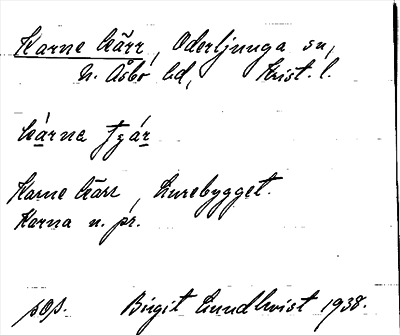 Karne Kärr, Oderljunga sn,
N. Åsbo hd, Krist. l.
kárna tʒár
Karne Kärr, Lurebygget.
Karna n. pr.
sOp. Birgit Lundkvist 1938.